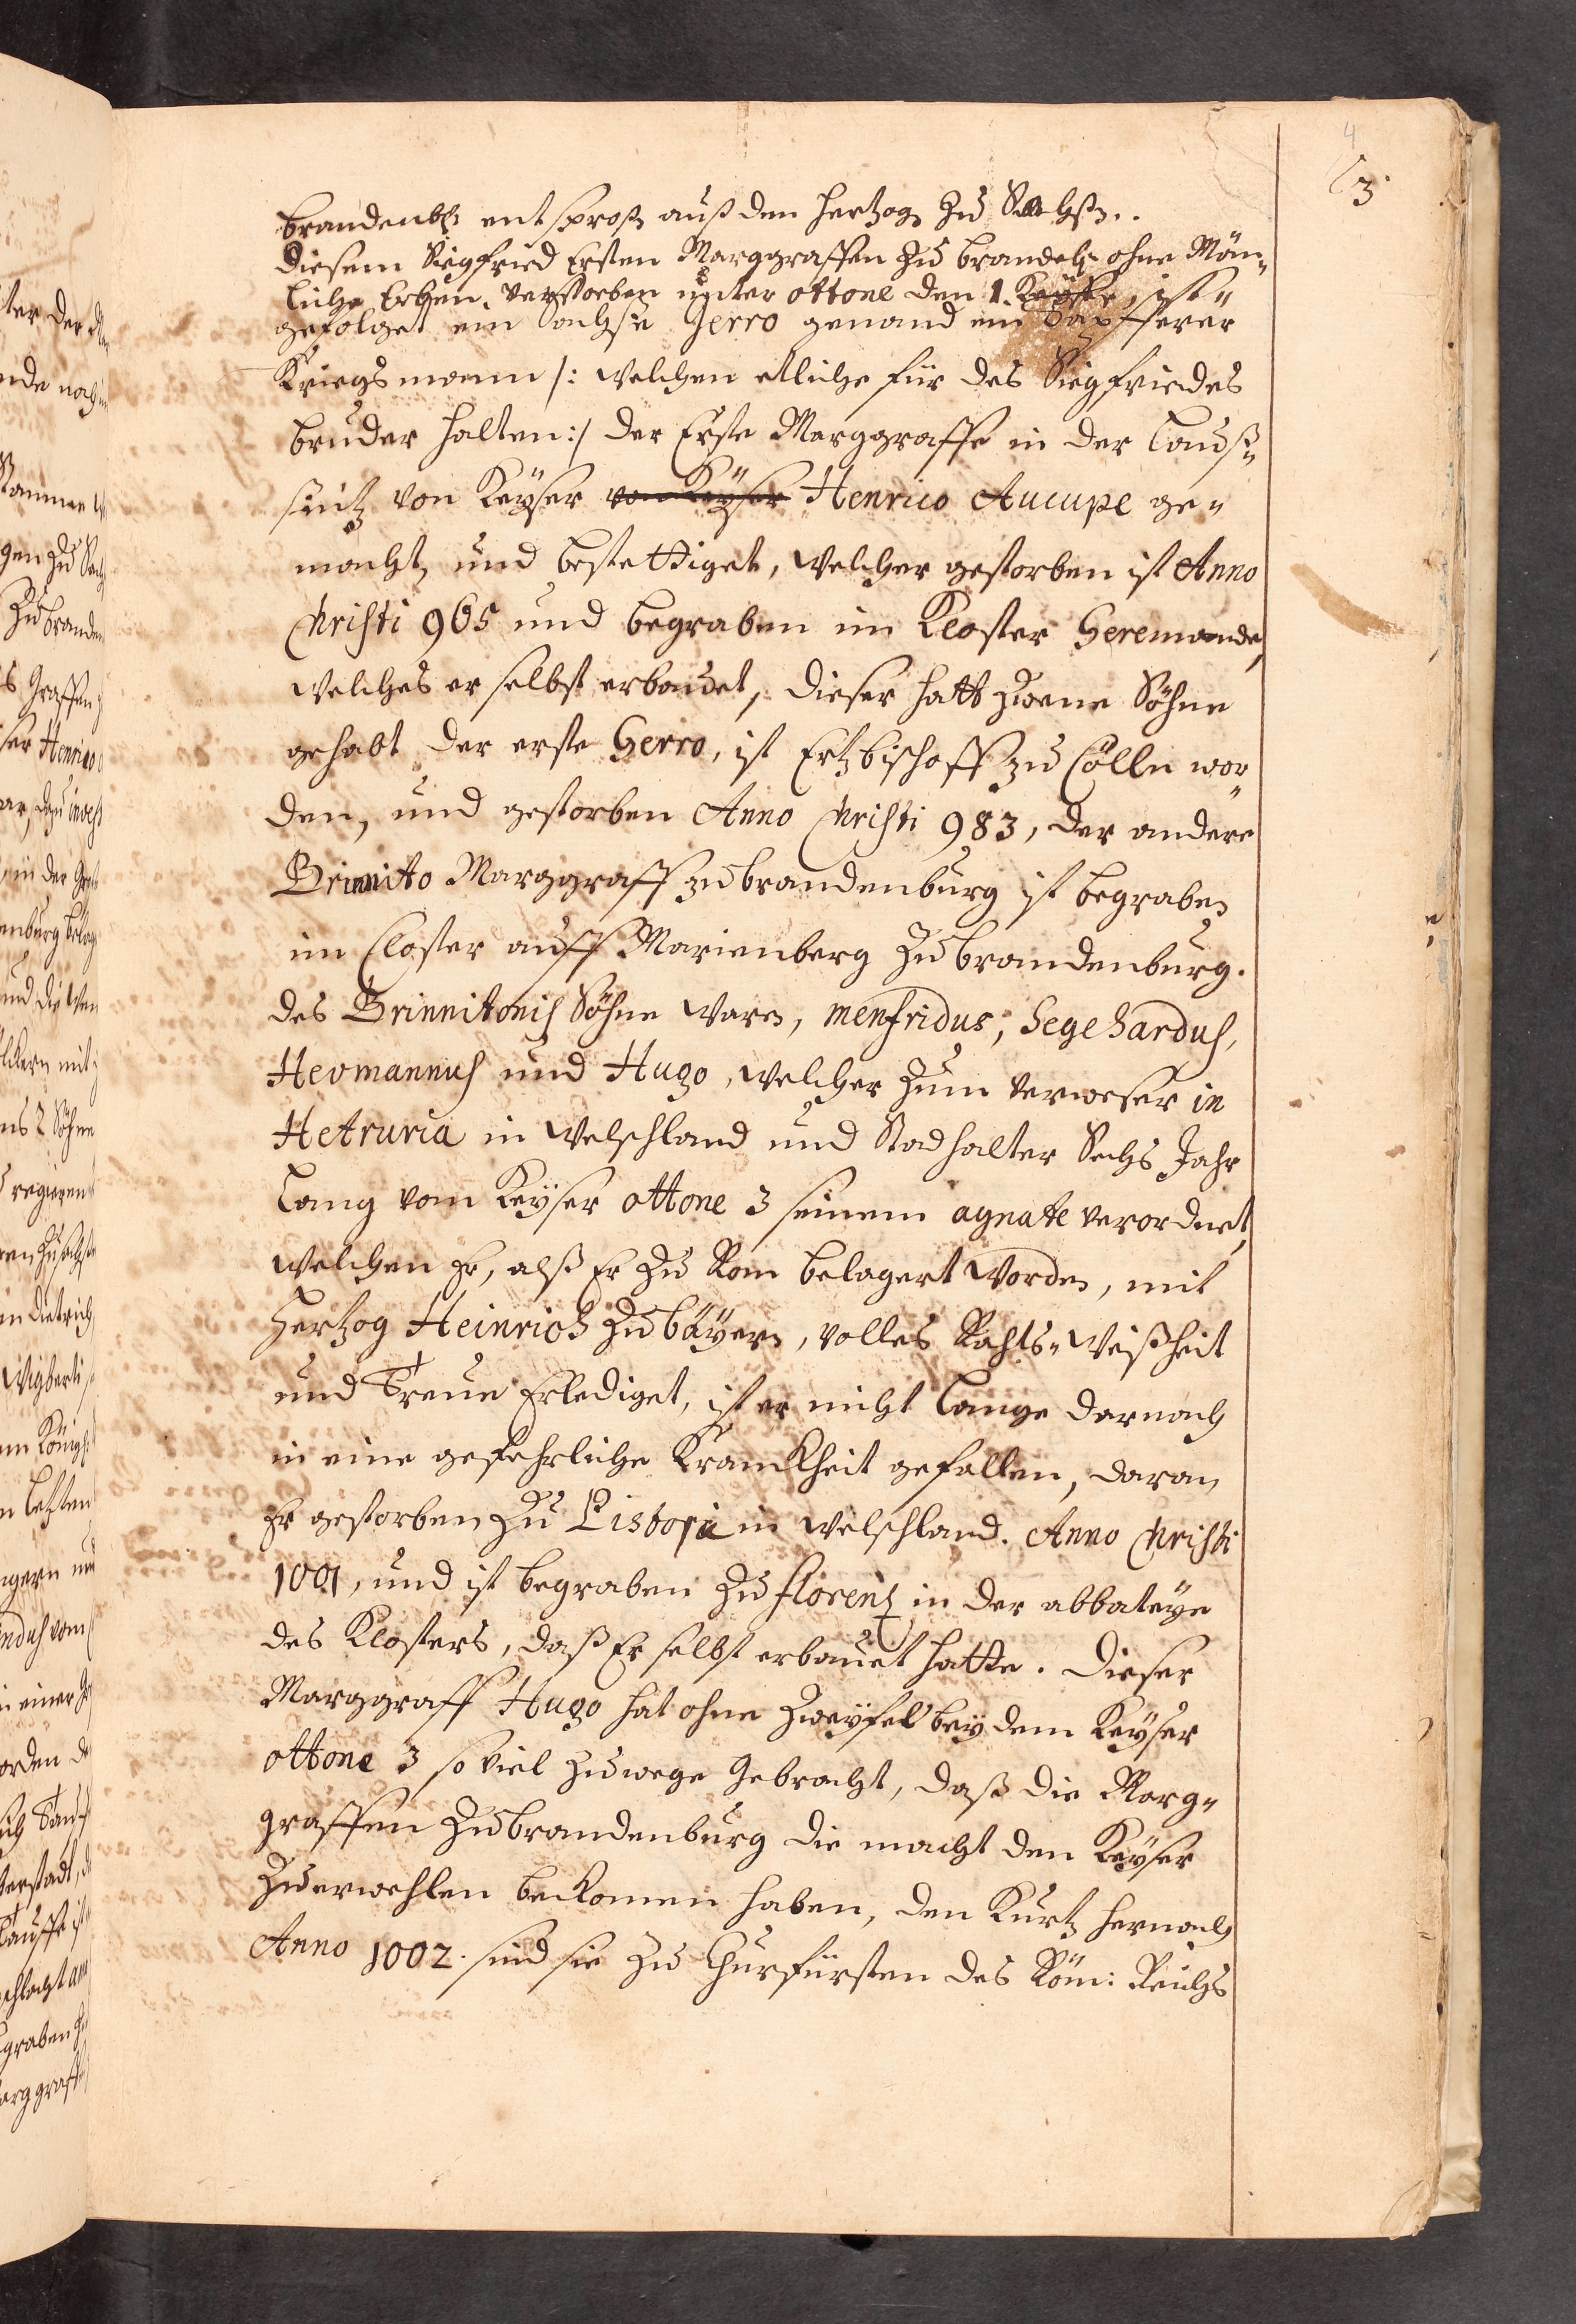 4
3.
brandenb: entsproß auß den Hertzog Zu Sachß..
Diesem Siegfried Ersten Marggraffen Zu brandeb: ohne Män„
liche Erben, verstorben unter ottone den 1. Keyser, ist„
gefolget ein Sachse Gerro genand ein Tapfferer
Kriegsmann /: welchen etliche für des Siegfriedes
bruder halten:/ der Erste Marggraffe in der Lauß„
sintz von Keyser von Keyser Henrico Aucupe ge„
macht, und bestettiget, welcher gestorben ist Anno
Christi 965 und begraben im Kloster Geremonde,
welches er selbst erbauet, dieser hatt zwene Söhne
gehabt der erste Gerro, ist Ertzbischoff zu Cölln wor„
den, und gestorben Anno Christi 983, der andere
Brinnito Marggraff zu brandenburg ist begraben
im Closter auff Marienberg Zu brandenburg.
des Brinnitonis Söhne waren, menfridus, Segehardus,
Hermannus und Hugo, welcher Zum verweser in
Hetruria in Welschland und Stadhalter Sechs Jahr
Lang vom Keyser ottone 3 seinem agnate verordnet,
welchen Er, alß Er Zu Rom belagert worden, mit
Hertzog Heinrich Zu bäyern, volles Rahts„ Weißheit
und Treue Erlediget, ist er nicht lange darnach
in eine gefehrliche Kranckheit gefallen, daran
Er gestorben Zu Pistoria in Welschland. Anno Christi
1001, und ist begraben Zu florentz in der abbateye
des Klosters, daß Er selbst erbauet hatte. Dieser
Marggraff Hugo hat ohne Zweyfel bey dem Keyser
ottone 3 so viel Zuwege Gebracht, daß die Marg„
graffen Zu brandenburg die macht den Keyser
Zu erwehlen bekomen haben, den Kurtz hernach
Anno 1002. sind sie Zu Churfürsten des Röm: Reichs